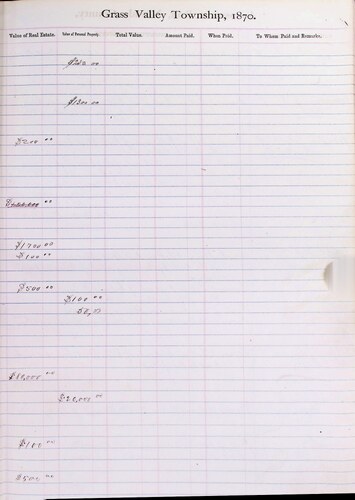 Grass Valley Township, 1870.
Value of Real Estate. Value of Personal Property. Total Value. Amount Paid. When Paid. To Whom Paid and Remarks.
$1300 00
$200 00
$1700 00
$100 00
$500 00
$100 00
50,00
$20,000 00
$100 00
$500 00